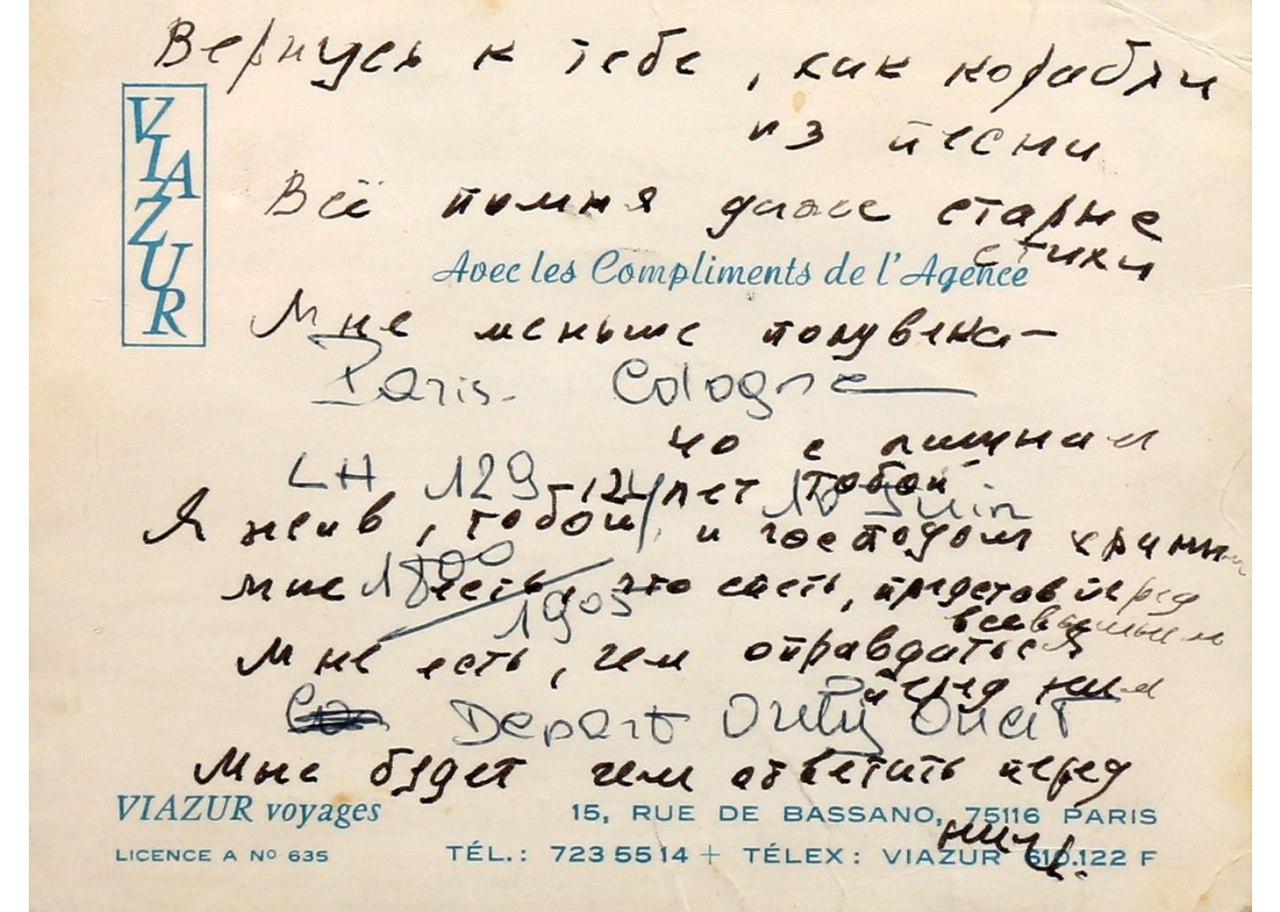 Вернусь к тебе, как корабли
из песни
VIAZUR
Всё помня даже старые
стихи
Avec les Compliments de l'Agence
Мне меньше полувека –
Paris - Cologne
но с лишним
LH 129 - 10 Juin
12 лет тобой
Я жив, тобой и господом храним
1800
мне есть, что спеть, представ перед
всевышним
1905
Мне есть, чем оправдаться
перед ним
Depart Orly Ouest
Мне будет чем ответить перед
ним.
VIAZUR voyages
15, RUE DE BASSANO, 75116 PARIS
LICENCE A Nº 635
TÉL.: 723 55 14 + TÉLEX: VIAZUR 610.122 F